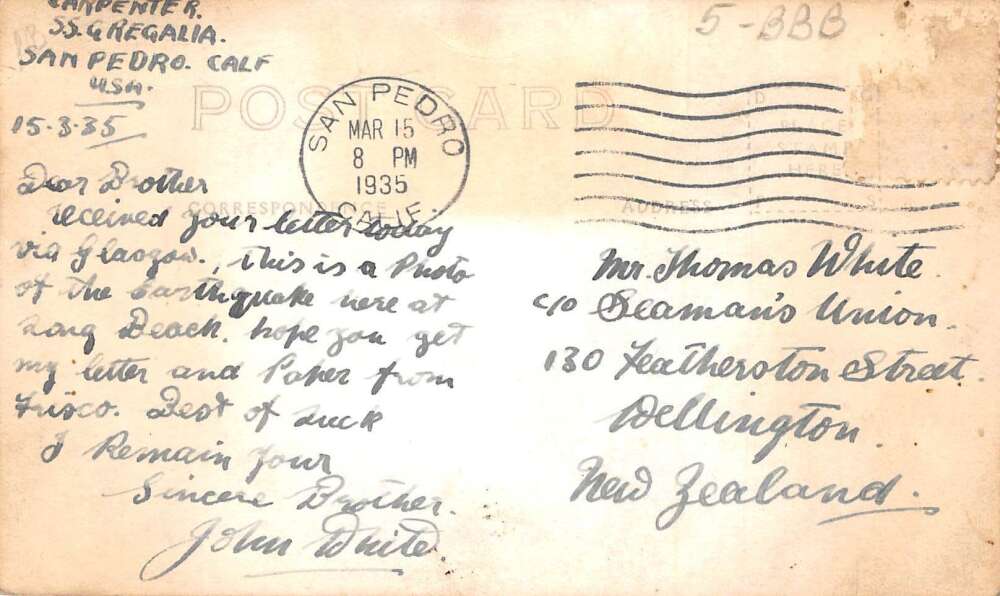 CARPENTER.
SS. GREGALIA.
SAN PEDRO. CALF
USA.
15-3-35
5-BBB
POST CARD
SAN PEDRO
MAR 15
8 PM
1935
CALIF.
PLACE
STAMP
HERE
CORRESPONDENCE
ADDRESS
Dear Brother
received your letter today
via Glasgow., this is a Photo
of the Earthquake here at
Long Beach. hope you get
my letter and Paper from
Frisco. Best of Luck
I Remain Your
Sincere Brother.
John White.
Mr. Thomas White.
c/o Seaman's Union.
130 Featherston Street.
Wellington.
New Zealand.